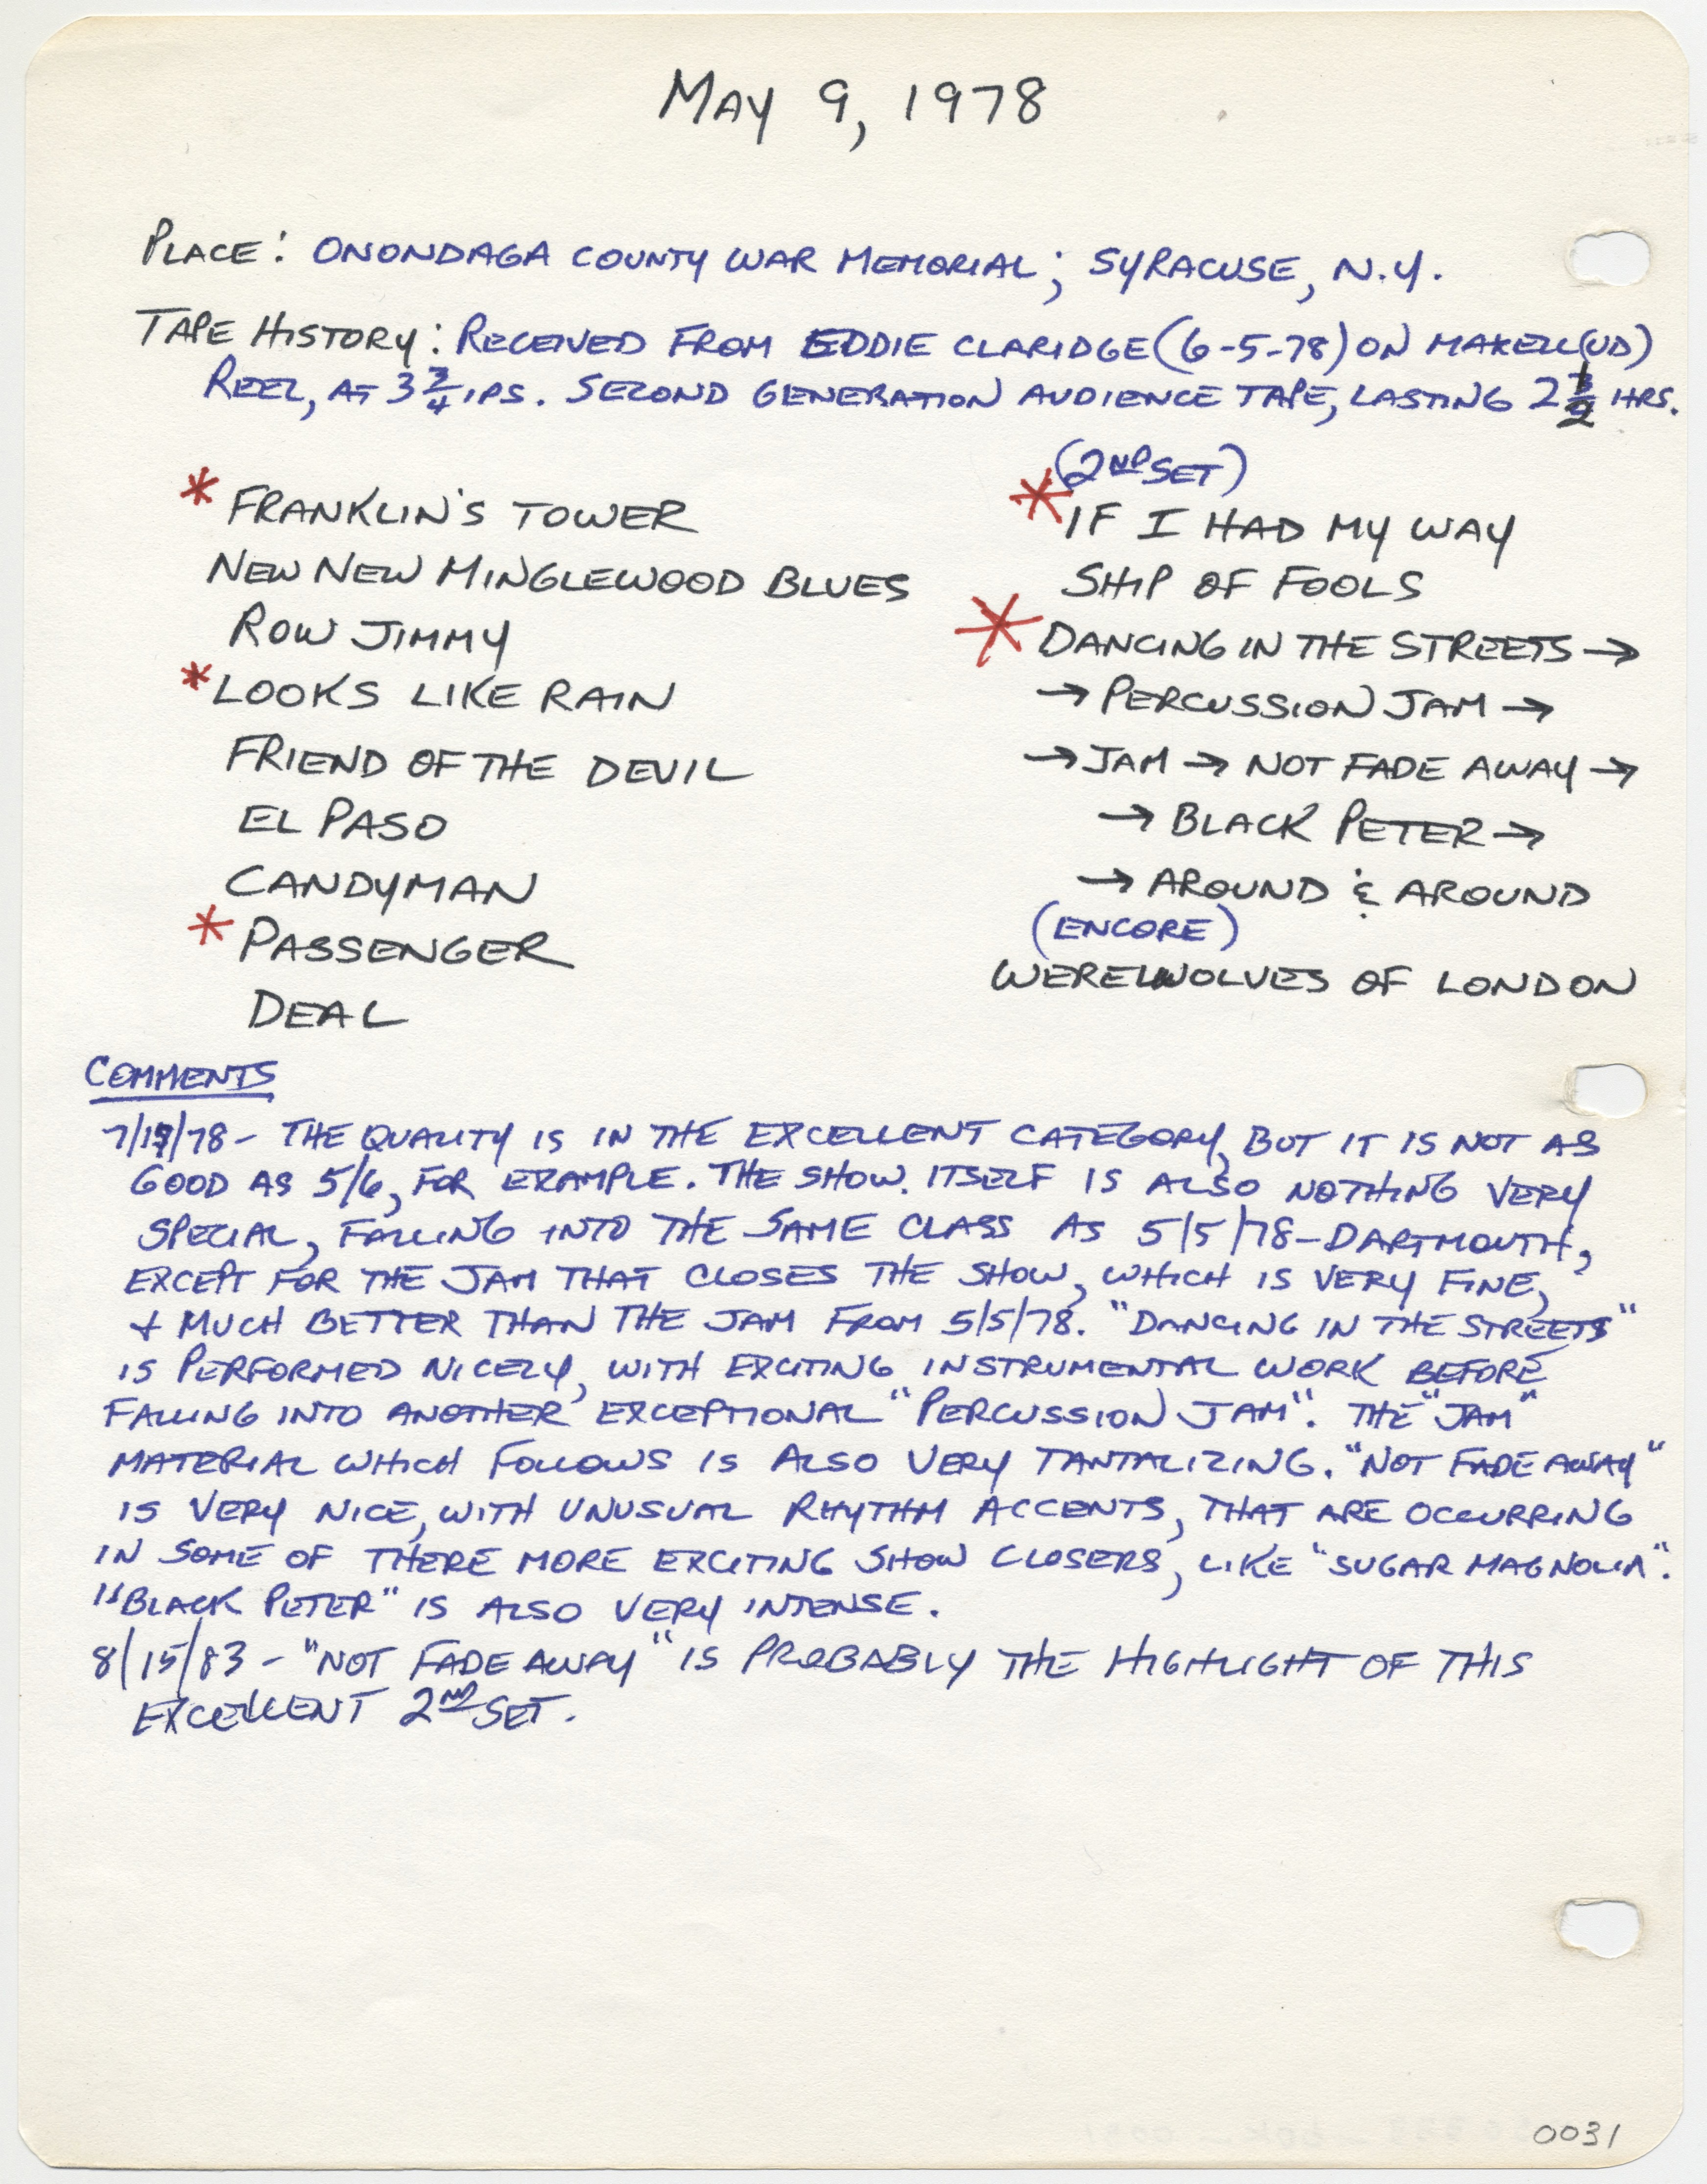 MAY 9, 1978
PLACE: ONONDAGA COUNTY WAR MEMORIAL; SYRACUSE, N.Y.
TAPE HISTORY: RECEIVED FROM EDDIE CLARIDGE (6-5-78) ON MAXELL (UD)
REEL, AT 3 3/4 IPS. SECOND GENERATION AUDIENCE TAPE, LASTING 2 1/2 HRS.
* FRANKLIN'S TOWER
NEW NEW MINGLEWOOD BLUES
ROW JIMMY
* LOOKS LIKE RAIN
FRIEND OF THE DEVIL
EL PASO
CANDYMAN
* PASSENGER
DEAL
(2ND SET)
* IF I HAD MY WAY
SHIP OF FOOLS
* DANCING IN THE STREETS →
→ PERCUSSION JAM →
→ JAM → NOT FADE AWAY →
→ BLACK PETER →
→ AROUND & AROUND
(ENCORE)
WEREWOLVES OF LONDON
COMMENTS
7/19/78 - THE QUALITY IS IN THE EXCELLENT CATEGORY, BUT IT IS NOT AS
GOOD AS 5/6, FOR EXAMPLE. THE SHOW ITSELF IS ALSO NOTHING VERY
SPECIAL, FALLING INTO THE SAME CLASS AS 5/5/78 - DARTMOUTH,
EXCEPT FOR THE JAM THAT CLOSES THE SHOW, WHICH IS VERY FINE,
& MUCH BETTER THAN THE JAM FROM 5/5/78. "DANCING IN THE STREETS"
IS PERFORMED NICELY, WITH EXCITING INSTRUMENTAL WORK BEFORE
FALLING INTO ANOTHER EXCEPTIONAL "PERCUSSION JAM". THE "JAM"
MATERIAL WHICH FOLLOWS IS ALSO VERY TANTALIZING. "NOT FADE AWAY"
IS VERY NICE, WITH UNUSUAL RHYTHM ACCENTS, THAT ARE OCCURRING
IN SOME OF THERE MORE EXCITING SHOW CLOSERS, LIKE "SUGAR MAGNOLIA".
"BLACK PETER" IS ALSO VERY INTENSE.
8/15/83 - "NOT FADE AWAY" IS PROBABLY THE HIGHLIGHT OF THIS
EXCELLENT 2ND SET.
0031